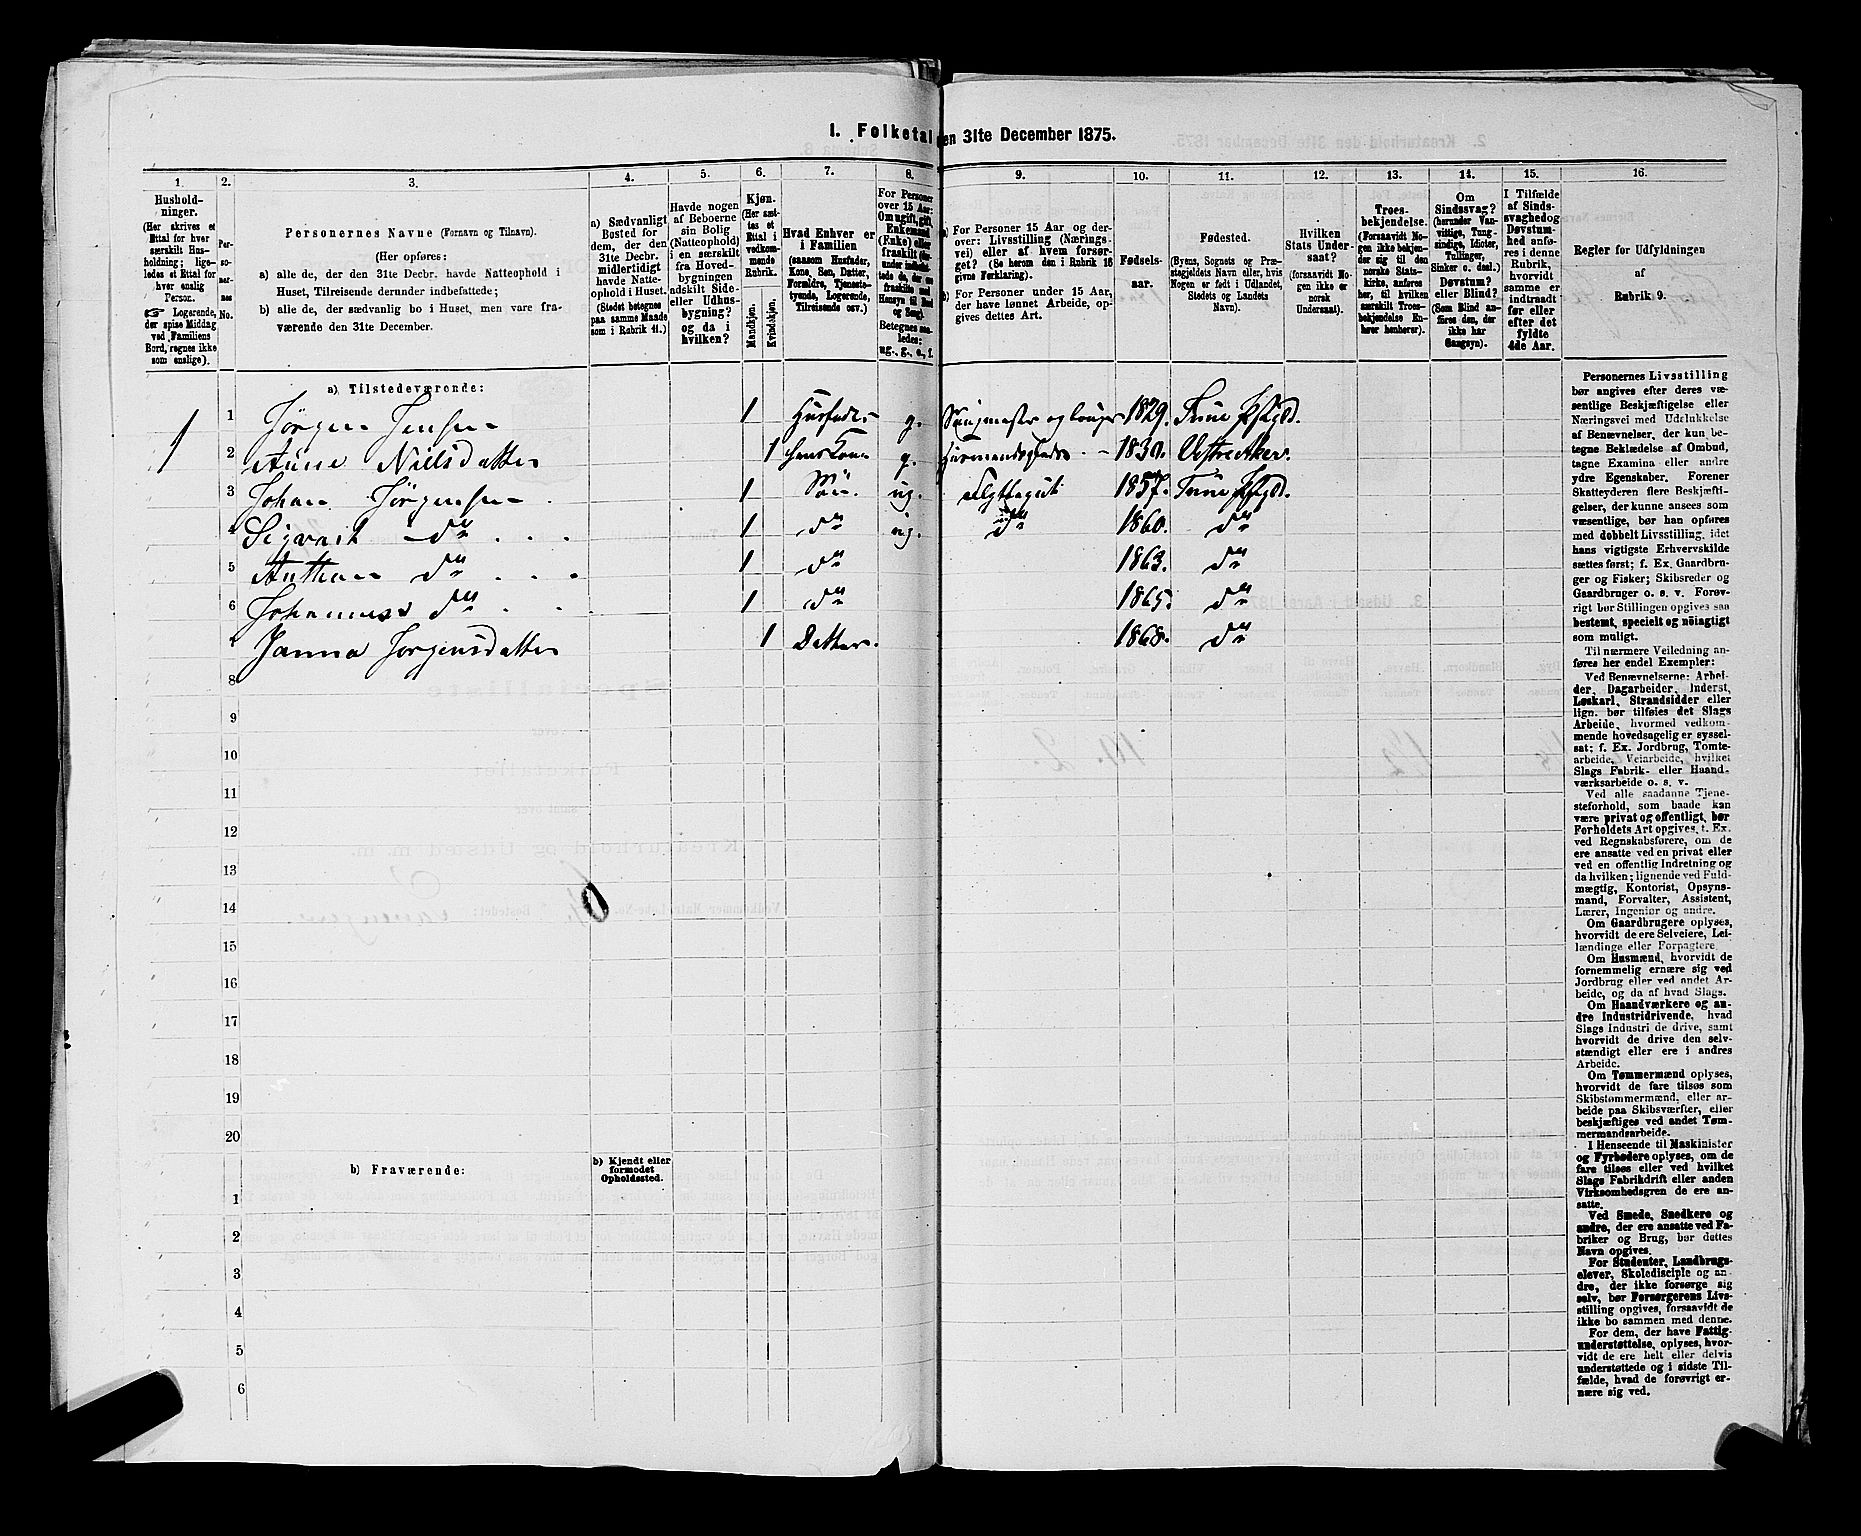 1. Folketal den 31te December 1875.
1. 2. 3. 4. 5. 6. 7. 8. 9. 10. 11. 12. 13. 14. 15. 16.
Hushold-
ninger.
(Her skrives et
Ettal for hver
særskilt Hus-
holdning; lige-
ledes et Ettal for
hver enslig
Person.
☞ Logerende,
der spise Middag
ved Familiens
Bord, regnes ikke
som enslige).
Per-
so-
ner-
nes
No.
Personernes Navne (Fornavn og Tilnavn).
(Her opføres:
a) alle de, der den 31te Decbr. havde Natteophold i
Huset, Tilreisende derunder indbefattede;
b) alle de, der sædvanlig bo i Huset, men vare fra-
værende den 31te December.
a) Sædvanligt
Bosted for
dem, der den
31te Decbr.
midlertidigt
havde Natte-
ophold i Huset.
(Stedet betegnes
paa samme Maade
som i Rubrik 11.)
Havde nogen
af Beboerne
sin Bolig
(Natteophold)
i en særskilt
fra Hoved-
bygningen
adskilt Side-
eller Udhus-
bygning?
og da i
hvilken?
Kjøn.
(Her sæt-
tes et
Ettal i
vedkom-
mende
Rubrik.
Mandkjøn.
Kvindekjøn.
Hvad Enhver er
i Familien
(saasom Husfader,
Kone, Søn, Datter,
Forældre, Tjeneste-
tyende, Logerende,
Tilreisende osv.)
For Personer
over 15 Aar:
Om ugift, gift,
Enkemand
(Enke) eller
fraskilt
Betegnes saa-
ledes:
ug., g., e., f.
a) For Personer 15 Aar og der-
over: Livsstilling (Nærings-
vei) eller af hvem forsør-
get? (Se herom den i Rubrik 16
givne Forklaring).
b) For Personer under 15 Aar,
der have lønnet Arbeide, op-
gives dettes Art.
Fødsels-
aar.
Fødested.
(Byens, Sognets og Præ-
stegjeldets Navn eller, hvis
Nogen er født i Udlandet,
Stedets og Landets
Navn).
Hvilken
Stats Under-
saat?
(forsaavidt No-
gen ikke er
norsk
Undersaat).
Troes-
bekjendelse.
(Forsaavidt No-
gen ikke bekjen-
der sig til den
norske Stats-
kirke, anføres
her, til hvilken
særskilt Troes-
bekjendelse En-
hver henhører).
Om
Sindssvag?
(herunder Van-
vittige, Tung-
sindige, Idioter,
Tullinger,
Sinker o. desl.)
Døvstum?
eller Blind?
(Som Blind an-
føres den, der
ikke har
Gangsyn).
I Tilfælde
af Sinds-
svaghed og
Døvstum-
hed anfø-
res i denne
Rubrik,
hvorvidt
samme er
indtraadt
før eller
efter det
fyldte
4de Aar.
Regler for Udfyldningen
af
Rubrik 9.
a) Tilstedeværende:
1 1 Jørgen Jensen 1 Husfader g. 1829. Tune Pstgd.
2 Anne Nielsdatter 1 hans Kone g. 1830. Vestre Aker.
3 Johan Jørgensen 1 Søn. ug. 1857. Tune Pstgd.
4 Sigvart do . . . 1 do ug. do 1860. do
5 Anthon do . . . 1 do 1863. do
6 Johannes do . . 1 do 1865. do
Janna Jørgensdatter 1 Datter. 1868. do
8
9
10
11
12
13
14
15
16
17
18
19
20
b) Fraværende:
b) Kjendt eller
formodet
Opholdssted.
1
2
3
4
5
6
Personernes Livsstilling
bør angives efter deres væ-
sentlige Beskjæftigelse eller
Næringsvei med Udelukkelse
af Benævnelser, der kun be-
tegne Beklædelse af Ombud,
tagne Examina eller andre
ydre Egenskaber. Forener
Skatteyderen flere Beskjæfti-
gelser, der kunne ansees som
væsentlige, bør han opføres
med dobbelt Livsstilling, idet
hans vigtigste Erhvervskilde
sættes først; f. Ex. Gaardbru-
ger og Fisker; Skibsreder og
Gaardbruger o. s. v. Forøv-
rigt bør Stillingen opgives saa
bestemt, specielt og nöiagtigt
som muligt.
Til nærmere Veiledning an-
føres her endel Exempler:
Ved Benævnelserne: Arbei-
der, Dagarbeider, Inderst,
Løskarl, Strandsidder eller
lign. bør tilføies det Slags
Arbeide, hvormed vedkom-
mende hovedsagelig er syssel-
sat; f. Ex. Jordbrug, Tomte-
arbeide, Veiarbeide, hvilket
Slags Fabrik- eller Haand-
værksarbeide o. s. v.
Ved alle saadanne Tjene-
steforhold, som baade kan
være privat og offentligt, bør
Forholdets Art opgives, t. Ex.
ved Regnskabsførere, om de
ere ansatte ved en privat eller
ved en offentlig Indretning og
da hvilken; lignende ved Fuld-
mægtig, Kontorist, Opsyns-
mand, Forvalter, Assistent,
Lærer, Ingeniør og andre.
Om Gaardbrugere oplyses,
hvorvidt de ere Selveiere, Lei-
lændinge eller Forpagtere.
Om Husmænd, hvorvidt de
fornemmelig ernære sig ved
Jordbrug eller ved andet Ar-
beide, og da af hvad Slags.
Om Haandværkere og an-
dre Industridrivende, hvad
Slags Industri de drive, samt
hvorvidt de drive den selv-
stændigt eller ere i andres
Arbeide.
Om Tømmermænd oplyses,
hvorvidt de fare tilsøs som
Skibstømmermænd, eller ar-
beide paa Skibsværfter, eller
beskjæftiges ved andet Tøm-
mermandsarbeide.
I Henseende til Maskinister
og Fyrbødere oplyses, om de
fare tilsøs eller ved hvilket
Slags Fabrikdrift eller anden
Virksomhedsgren de ere an-
satte.
Ved Smede, Snedkere og
andre, der ere ansatte ved Fa-
briker og Brug, bør dettes
Navn opgives.
For Studenter, Landbrugs-
elever, Skoledisciple og an-
dre, der ikke forsørge sig
selv, bør Forsørgerens Livs-
stilling opgives, forsaavidt de
ikke bo sammen med denne.
For dem, der have Fattig-
understøttelse, oplyses, hvor-
vidt de ere helt eller delvis
understøttede og i sidste Til-
fælde, hvad de forøvrigt er-
nære sig ved.